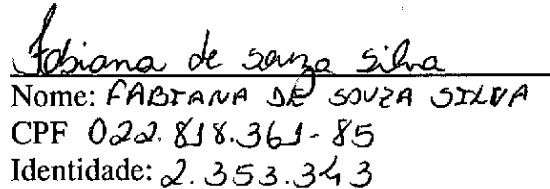 Fabiana de souza silva
Nome: FABIANA DE SOUZA SILVA
CPF 022.818.361-85
Identidade: 2.353.343